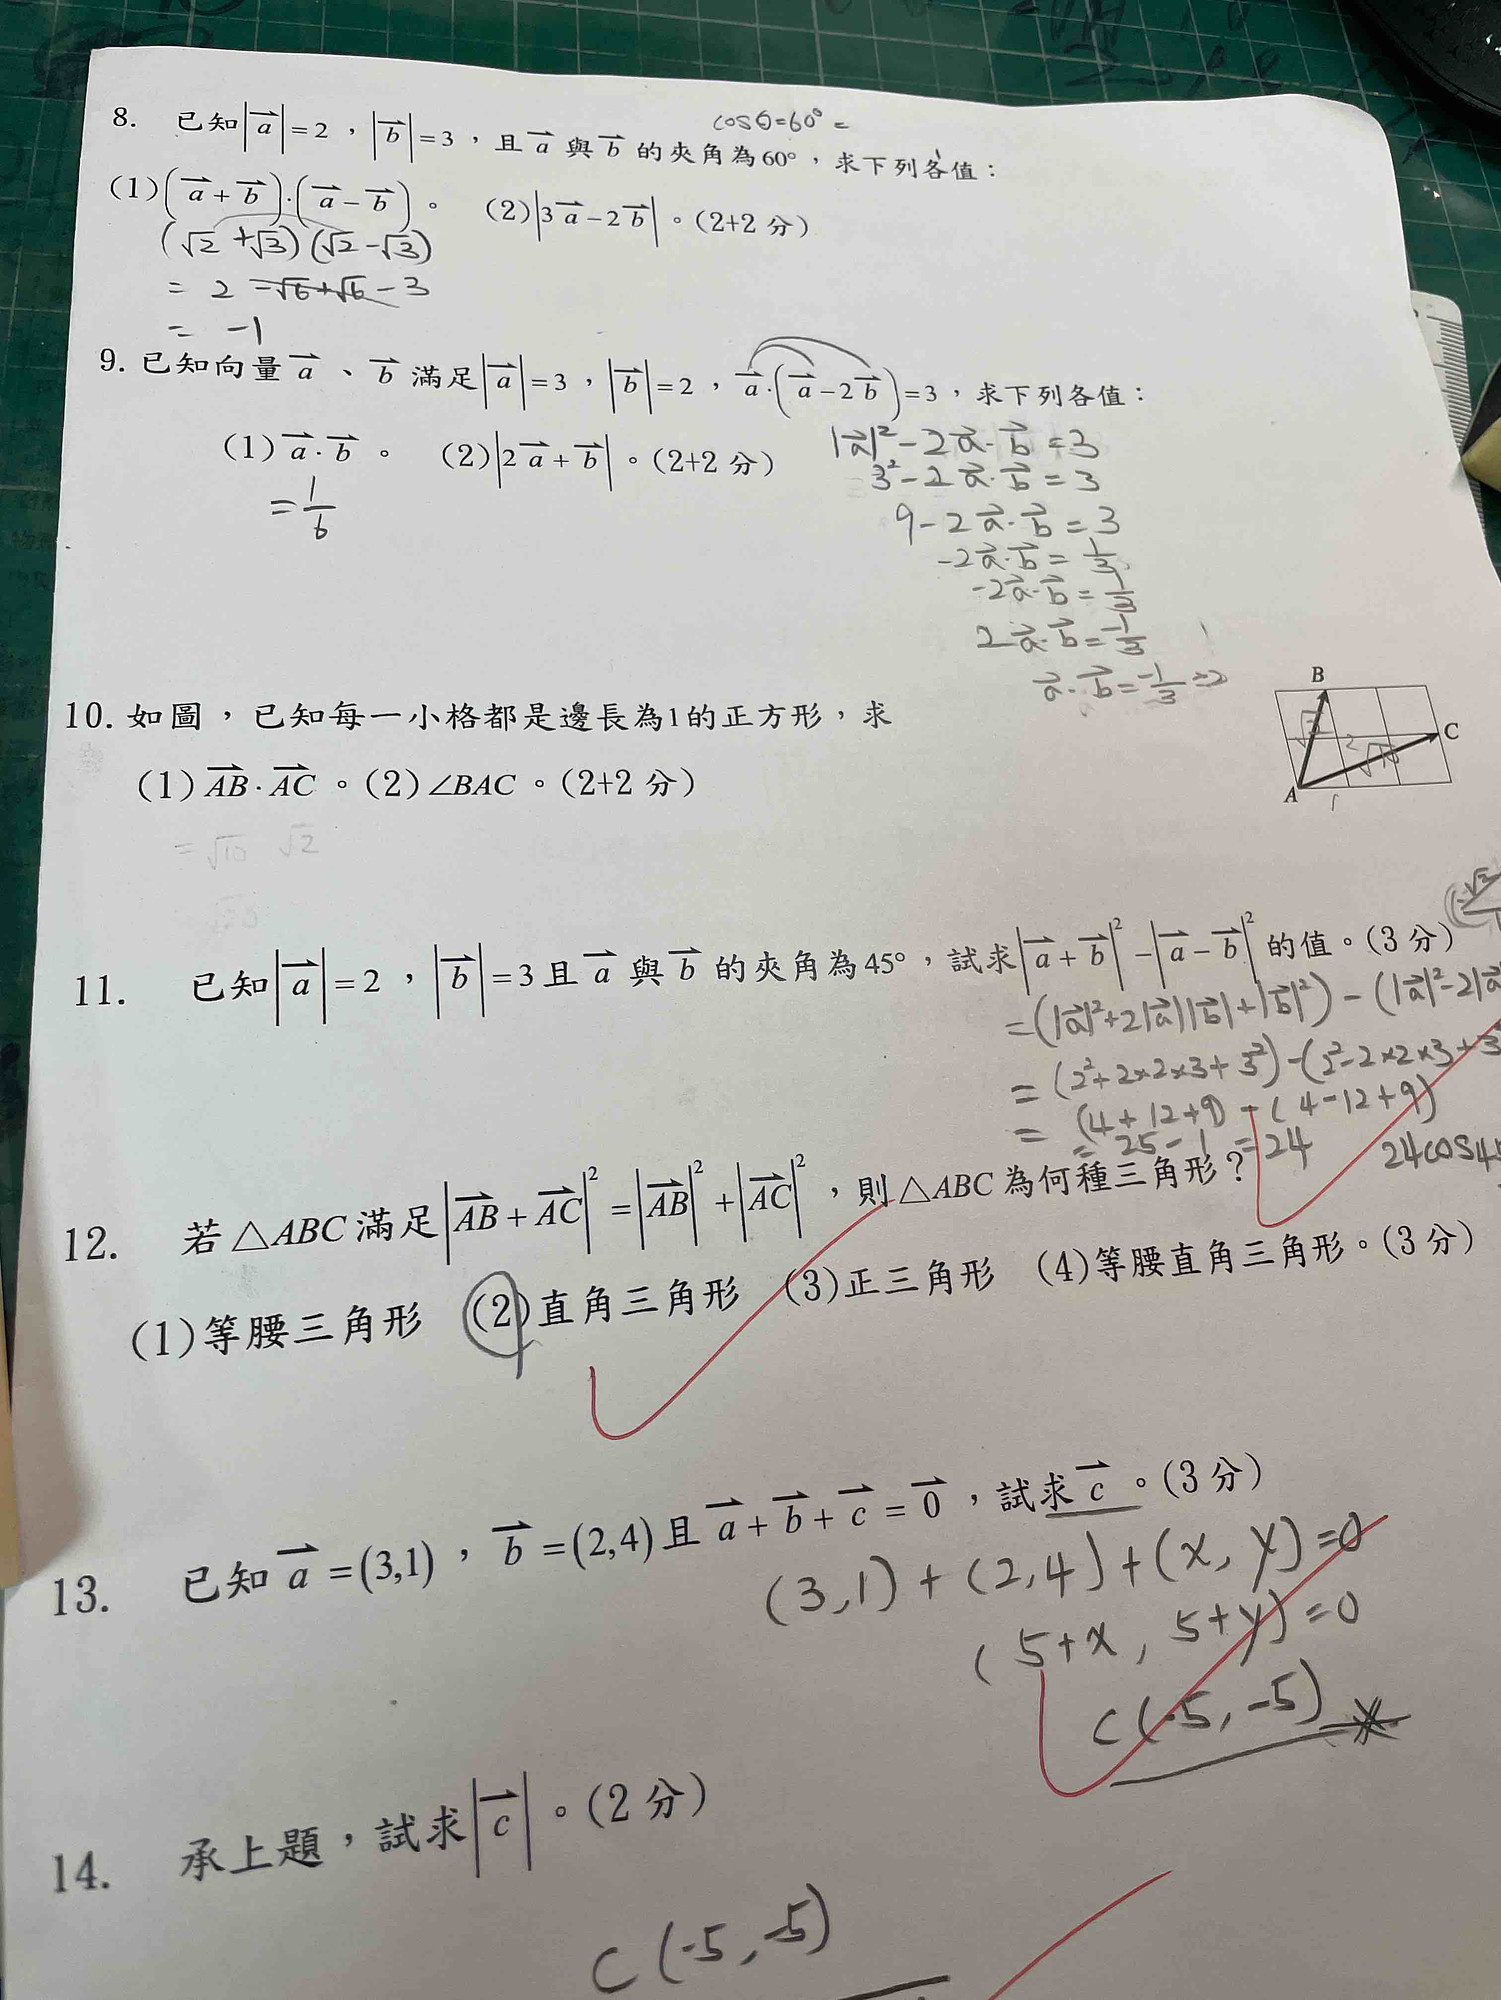 cosθ=60°=
8. 已知|a⃗|=2，|b⃗|=3，且a⃗與b⃗的夾角為60°，求下列各值：
(1)(a⃗+b⃗)·(a⃗−b⃗)。 (2)|3a⃗−2b⃗|。(2+2 分)
(√2+√3)(√2-√3)
= 2 -√6+√6 - 3
= -1
9. 已知向量a⃗、b⃗滿足|a⃗|=3，|b⃗|=2，a⃗·(a⃗−2b⃗)=3，求下列各值：
(1)a⃗·b⃗。 (2)|2a⃗+b⃗|。(2+2 分)
=1/6
|a⃗|²-2a⃗·b⃗=3
3²-2a⃗·b⃗=3
9-2a⃗·b⃗=3
-2a⃗·b⃗=1/3
-2a⃗·b⃗=1/3
2a⃗·b⃗=-1/3
a⃗·b⃗=-1/3÷2
10. 如圖，已知每一小格都是邊長為1的正方形，求
(1)AB⃗·AC⃗。(2)∠BAC。(2+2 分)
=√10 √2
B
C
√10
A
11. 已知|a⃗|=2，|b⃗|=3且a⃗與b⃗的夾角為45°，試求|a⃗+b⃗|²−|a⃗−b⃗|²的值。(3 分)
=(|a⃗|²+2|a⃗||b⃗|+|b⃗|²)-(|a⃗|²-2|a⃗
=(2²+2×2×3+3²)-(2²-2×2×3+3
=(4+12+9)-(4-12+9)
=25-1=24
24cos4
12. 若△ABC滿足|AB⃗+AC⃗|²=|AB⃗|²+|AC⃗|²，則△ABC為何種三角形？
(1)等腰三角形 (2)直角三角形 (3)正三角形 (4)等腰直角三角形。(3 分)
13. 已知a⃗=(3,1)，b⃗=(2,4)且a⃗+b⃗+c⃗=0⃗，試求c⃗。(3 分)
(3,1)+(2,4)+(x,y)=0
(5+x, 5+y)=0
C(-5,-5)
14. 承上題，試求|c⃗|。(2 分)
C(-5,-5)